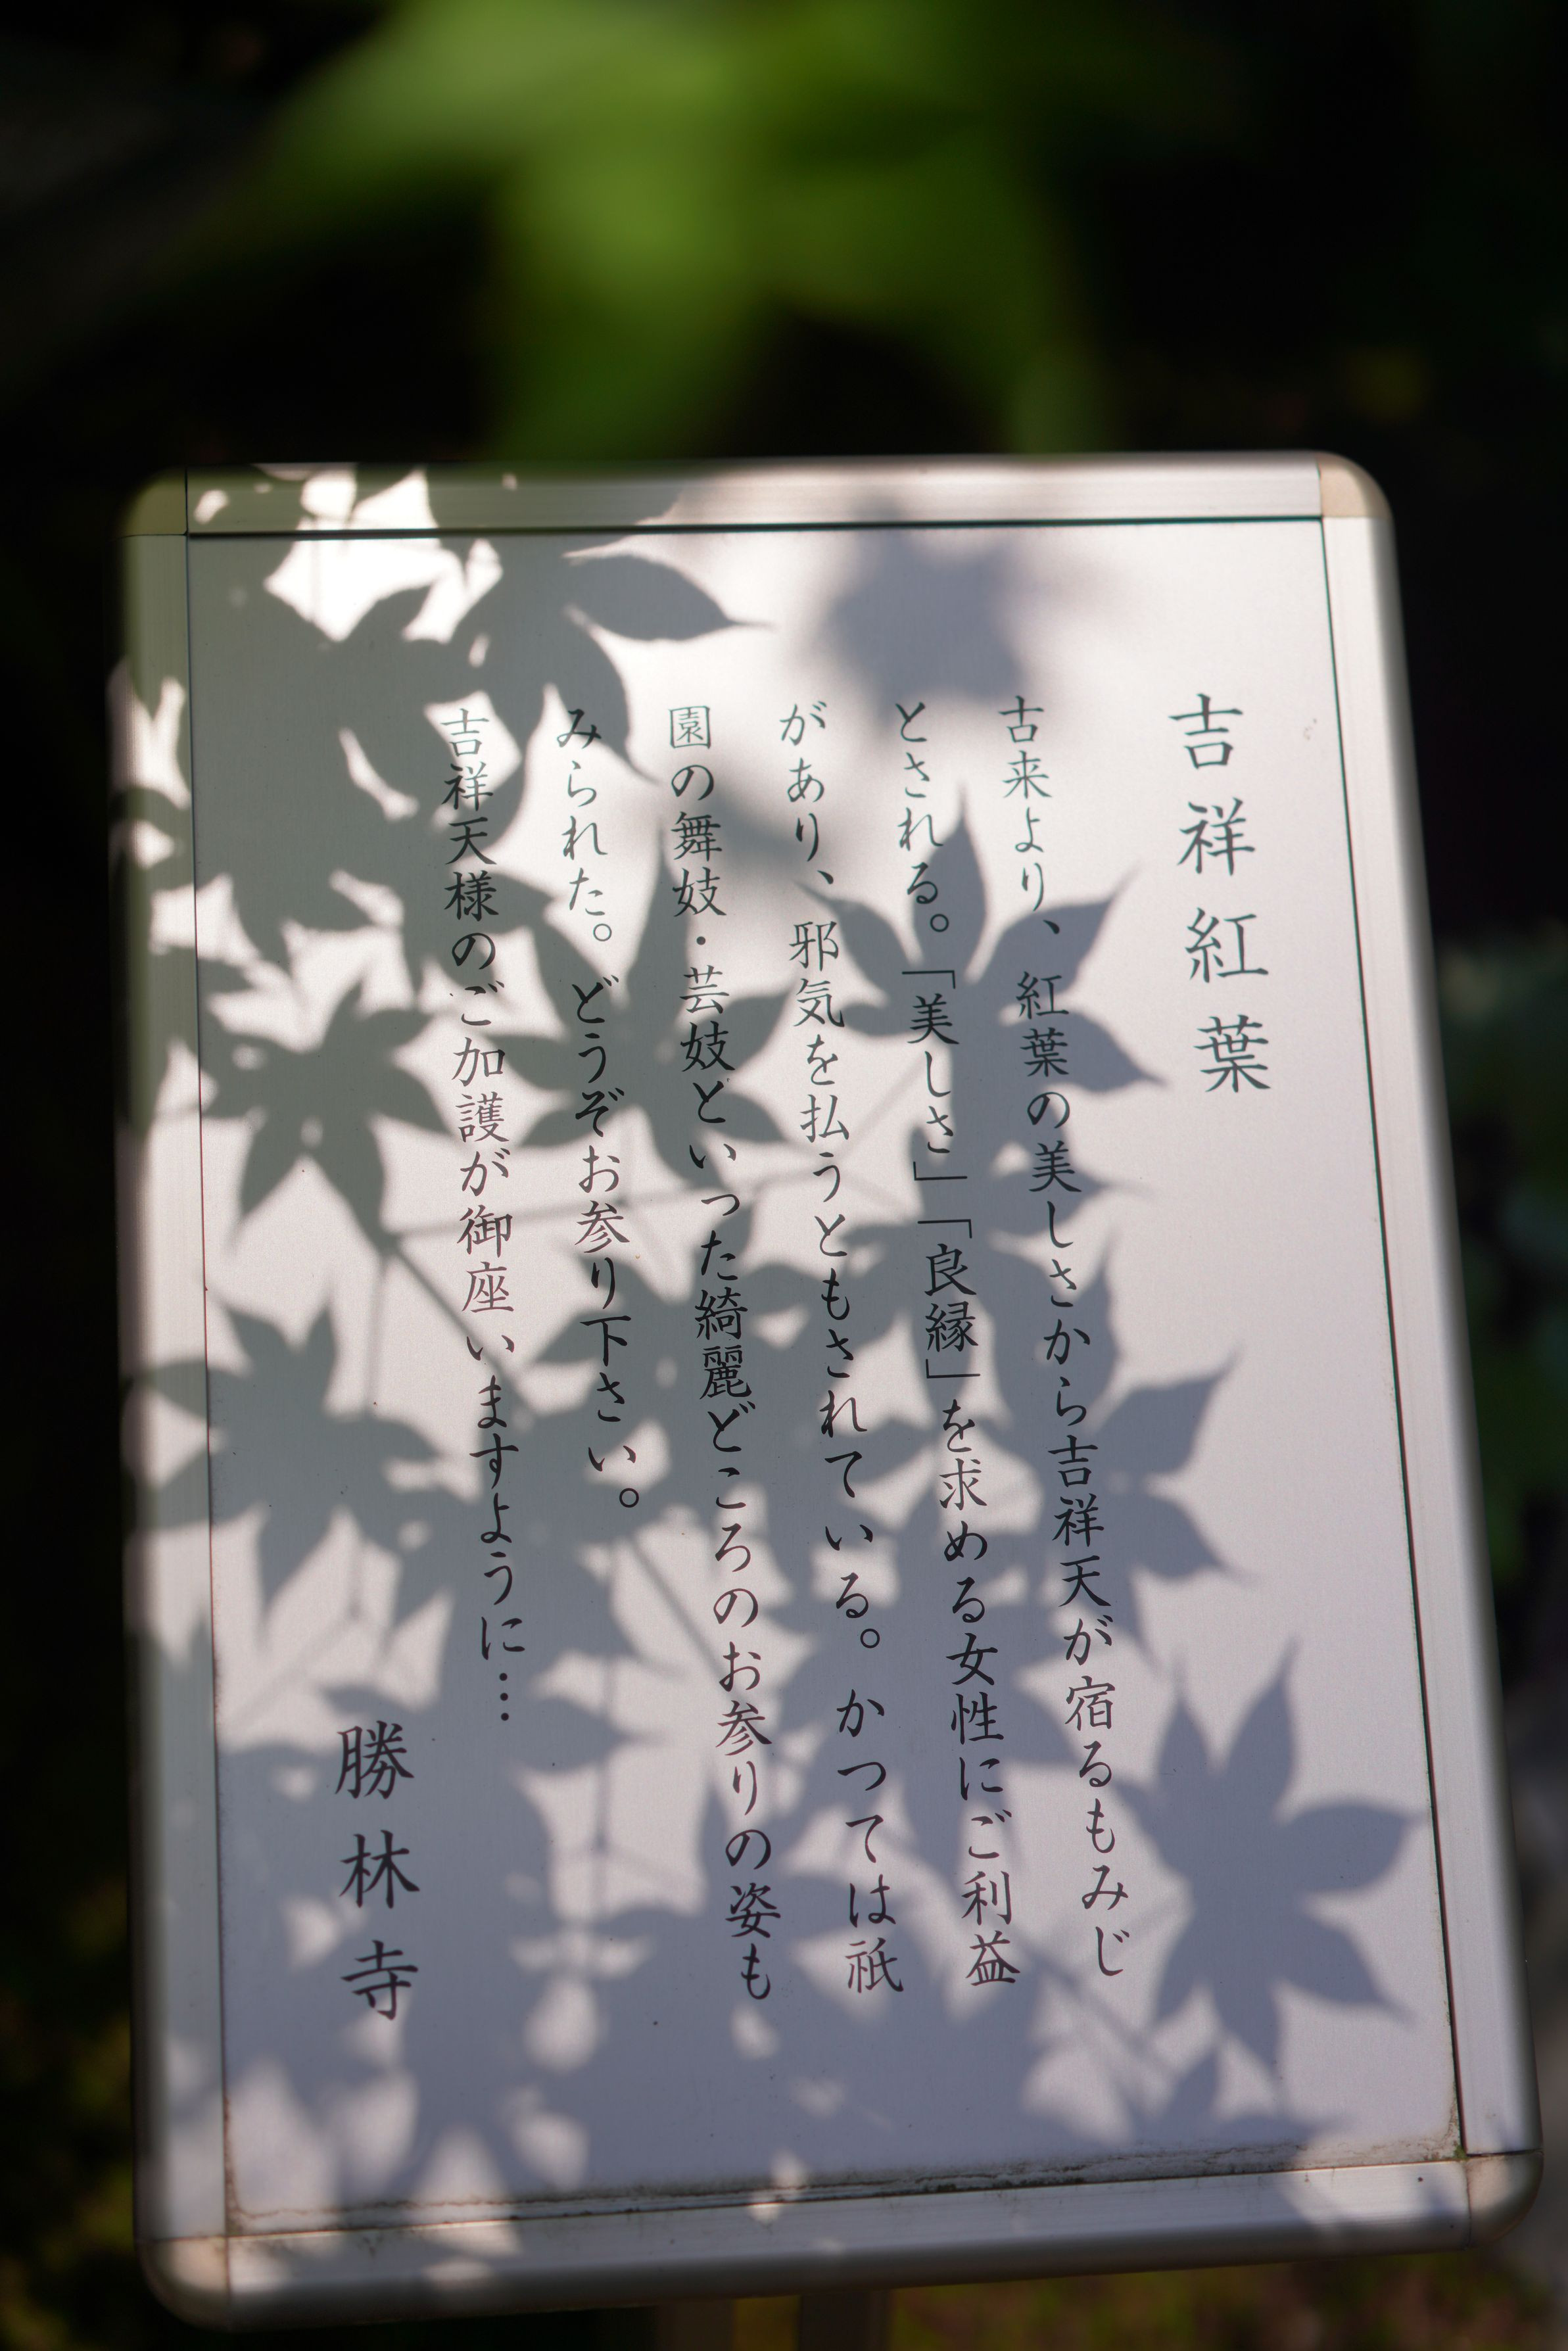 吉祥紅葉
古来より、紅葉の美しさから吉祥天が宿るもみじ
とされる。「美しさ」「良縁」を求める女性にご利益
があり、邪気を払うともされている。かつては祇
園の舞妓・芸妓といった綺麗どころのお参りの姿も
みられた。どうぞお参り下さい。
吉祥天様のご加護が御座いますように…
勝林寺